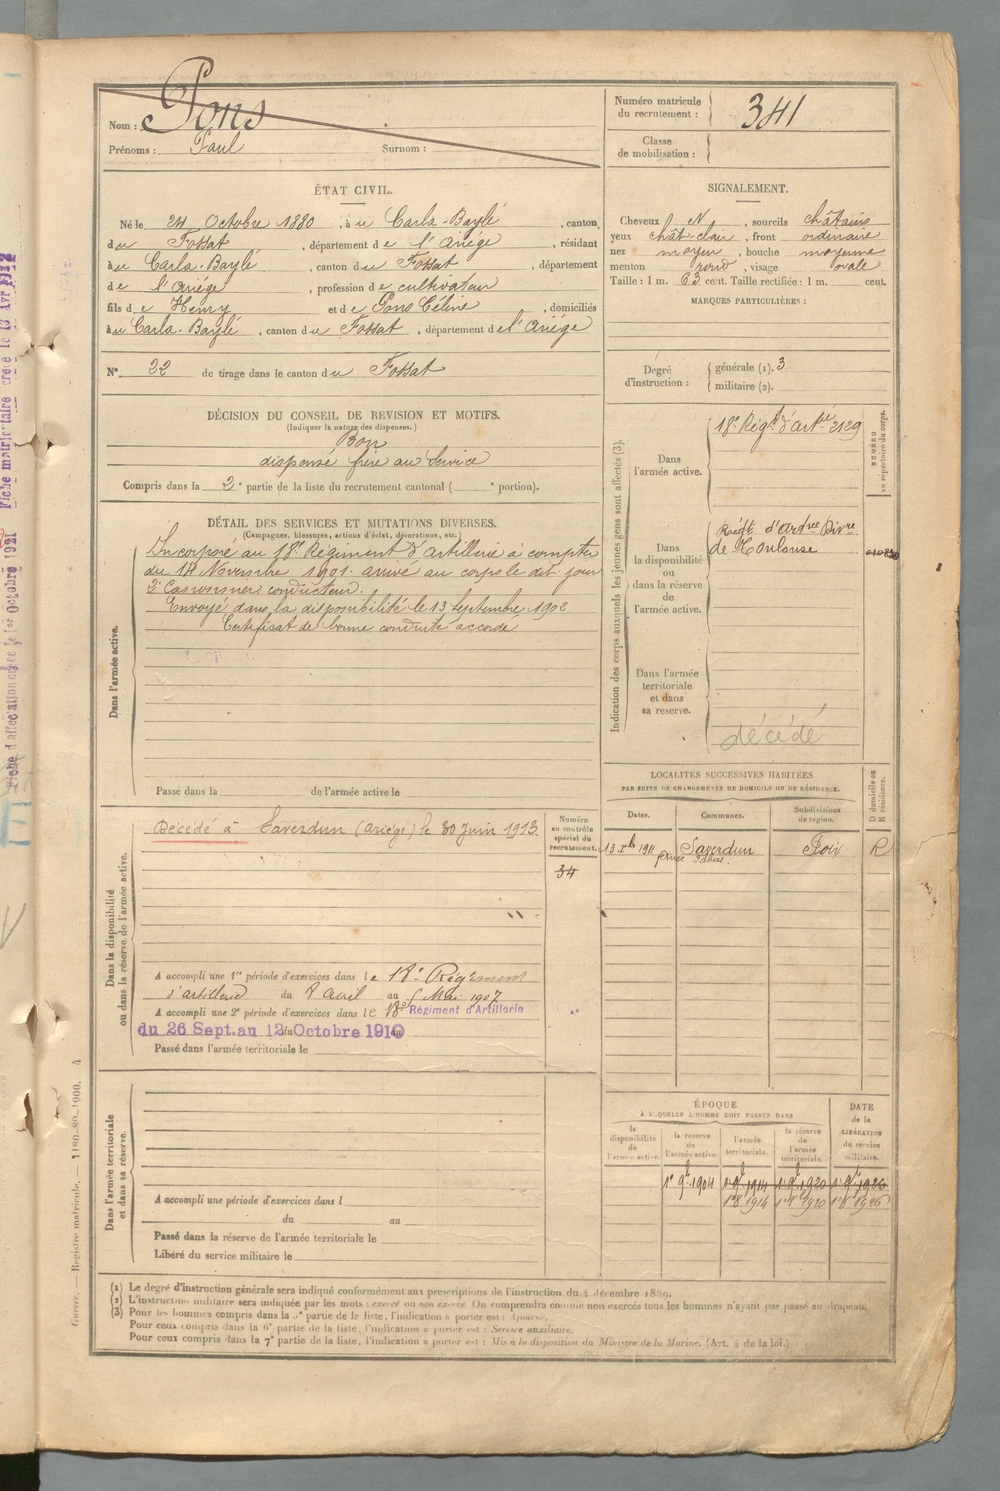 Nom : Pons
Prénoms : Paul Surnom :
Numéro matricule du recrutement : 341
Classe de mobilisation :
ÉTAT CIVIL.
Né le 24 Octobre 1880, à u Carla-Baylé, canton
du Fossat, département de l'Ariége, résidant
à u Carla-Baylé, canton du Fossat, département
de l'Ariége, profession de cultivateur
fils de Henry et de Pons Céline, domiciliés
à u Carla-Baylé, canton du Fossat, département de l'Ariége
N° 22 de tirage dans le canton du Fossat
SIGNALEMENT.
Cheveux N, sourcils châtains
yeux chât-clair, front ordinaire
nez moyen, bouche moyenne
menton rond, visage ovale
Taille : 1 m. 63 cent. Taille rectifiée : 1 m. cent.
MARQUES PARTICULIÈRES :
Degré d'instruction : générale (1). 3
militaire (2).
DÉCISION DU CONSEIL DE REVISION ET MOTIFS.
(Indiquer la nature des dispenses.)
Bon
dispensé frère au service
Compris dans la 2e partie de la liste du recrutement cantonal ( e portion).
DÉTAIL DES SERVICES ET MUTATIONS DIVERSES.
(Campagnes, blessures, actions d'éclat, décorations, etc.)
Dans l'armée active.
Incorporé au 18e Régiment d'artillerie à compter
du 14 Novembre 1901. arrivé au corps le dit jour
2e Canonnier conducteur.
Envoyé dans la disponibilité le 13 Septembre 1902
Certificat de bonne conduite accordé
Passé dans la de l'armée active le
Indication des corps auxquels les jeunes gens sont affectés (3).
NUMÉRO au répertoire du corps.
Dans l'armée active.
18e Régt d'artie 2129
Dans la disponibilité ou dans la réserve de l'armée active.
Régt d'artrie Divre
de Toulouse
Dans l'armée territoriale et dans sa réserve.
décédé
Dans la disponibilité ou dans la réserve de l'armée active.
Décédé à Saverdun (Ariége) le 30 Juin 1913.
Numéro au contrôle spécial du recrutement.
34
A accompli une 1re période d'exercices dans le 18e Régiment
d'artillerie du 8 avril au 5 Mai 1907
A accompli une 2e période d'exercices dans le 18e Régiment d'Artillerie
du 26 Sept. au 12 Octobre 1910
Passé dans l'armée territoriale le
LOCALITÉS SUCCESSIVES HABITÉES
PAR SUITE DE CHANGEMENTS DE DOMICILE OU DE RÉSIDENCE.
D domicile ou R résidence.
Dates. Communes. Subdivisions de région.
13 xbre 1911 Saverdun Foix R
Dans l'armée territoriale et dans sa réserve.
A accompli une période d'exercices dans l
du au
Passé dans la réserve de l'armée territoriale le
Libéré du service militaire le
ÉPOQUE
À LAQUELLE L'HOMME DOIT PASSER DANS
DATE de la LIBÉRATION du service militaire.
la disponibilité de l'armée active. la réserve de l'armée active. l'armée territoriale. la réserve de l'armée territoriale.
1er 9bre 1904 1er 9bre 1914 1er 9bre 1920 1er 9bre 1926
1er 8 1914 1er 8 1920 1er 8 1926
(1) Le degré d'instruction générale sera indiqué conformément aux prescriptions de l'instruction du 4 décembre 1889.
(2) L'instruction militaire sera indiquée par les mots : exercé ou non exercé. On comprendra comme non exercés tous les hommes n'ayant pas passé au drapeau.
(3) Pour les hommes compris dans la 5e partie de la liste, l'indication à porter est : Ajourné.
Pour ceux compris dans la 6e partie de la liste, l'indication à porter est : Service auxiliaire.
Pour ceux compris dans la 7e partie de la liste, l'indication à porter est : Mis à la disposition du Ministre de la Marine. (Art. 4 de la loi.)
Guerre. — Registre matricule. — 1180-80-1900. 4
Fiche d'affectation créée le 1er Octobre 1921
Fiche matriculaire créée le